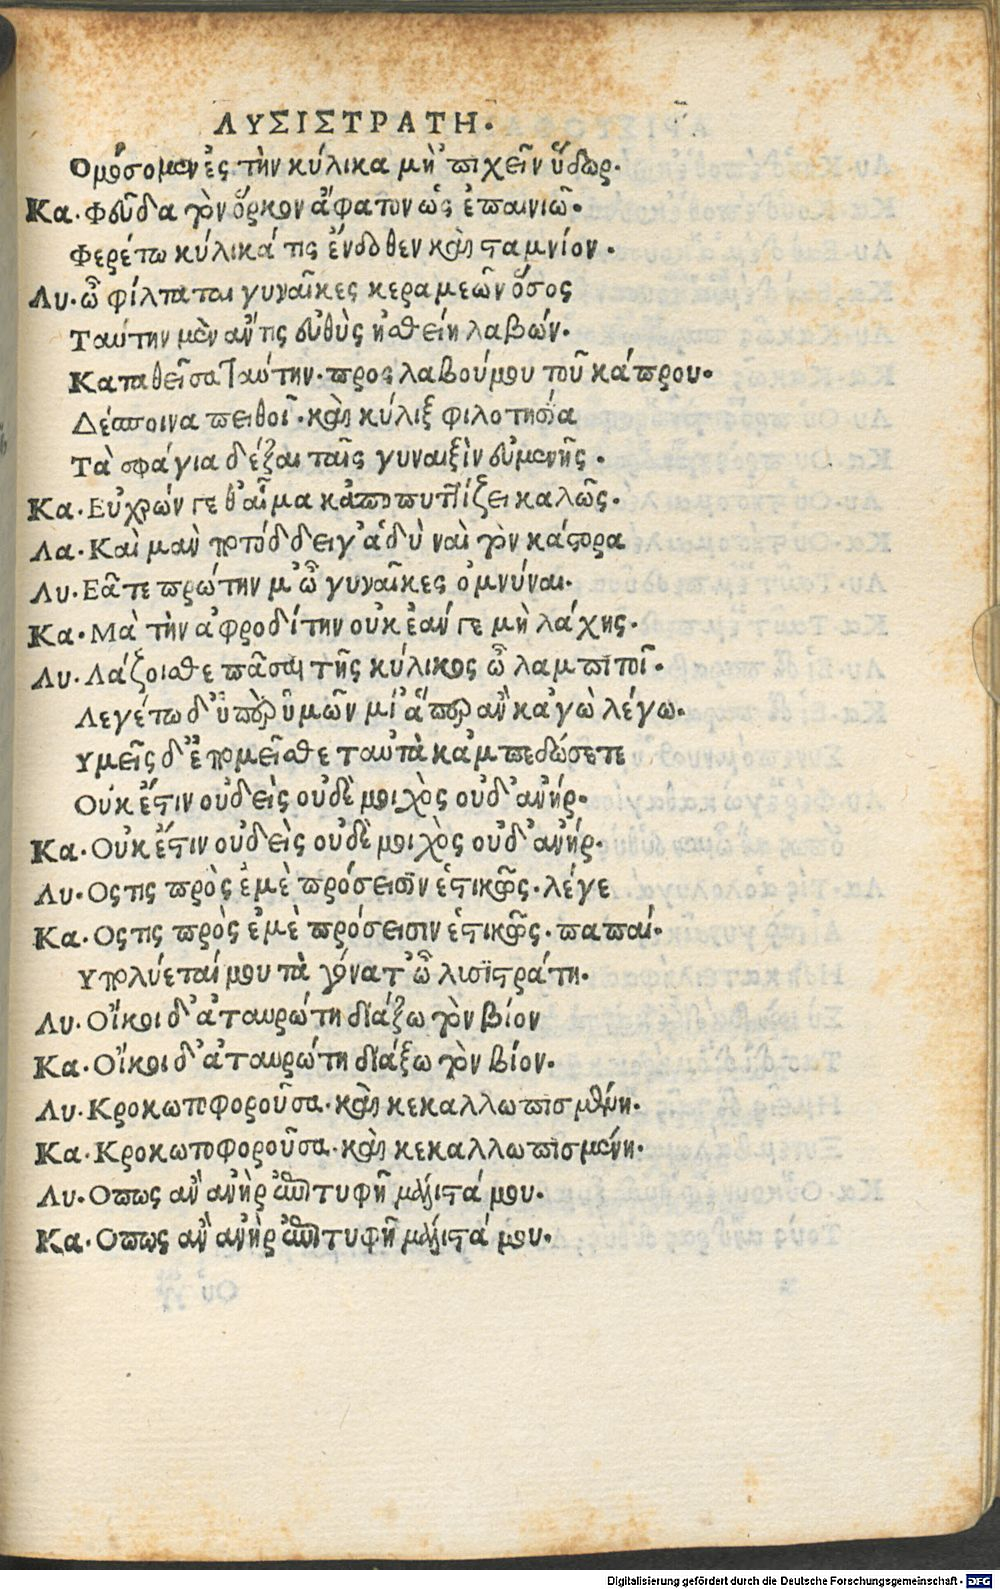 ΛΥΣΙΣΤΡΑΤΗ.
Ὀμόσομεν ἐς τὴν κύλικα μὴ ᾽πιχεῖν ὕδωρ.
Κα. Φεῦ δᾶ τὸν ὅρκον ἄφατον ὡς ἐπαινιῶ.
Φερέτω κύλικά τις ἔνδοθεν καὶ σταμνίον.
Λυ. ὦ φίλταται γυναῖκες κεραμεῶν ὅσος
Ταύτην μὲν ἄν τις εὐθὺς ἡσθείη λαβών.
Καταθεῖσα ταύτην. προς λαβού μου τοῦ κάπρου.
Δέσποινα πειθοῖ. καὶ κύλιξ φιλοτησία
Τὰ σφάγια δέξαι ταῖς γυναιξὶν εὐμενής.
Κα. Εὔχρών γε θ᾽αἷμα κἀποπυτίζει καλῶς.
Λα. Καὶ μὰν ποτόδδει γ᾽ἁδὺ ναὶ τὸν κάστορα
Λυ. Εᾶτε πρώτην μ᾽ὦ γυναῖκες ὀμνύναι.
Κα. Μὰ τὴν ἀφροδίτην οὐκ ἐάν γε μὴ λάχῃς.
Λυ. Λάζοισθε πᾶσαι τῆς κύλικος ὦ λαμπιτοῖ.
Λεγέτω δ᾽ὑπὲρ ὑμῶν μί᾽ἅπερ ἂν κἀγὼ λέγω.
Υμεῖς δ᾽ἐπομεῖσθε ταυτὰ κἀμπεδώσετε
Οὐκ ἔστιν οὐδεὶς οὐδὲ μοιχὸς οὐδ᾽ἀνήρ.
Κα. Οὐκ ἔστιν οὐδεὶς οὐδὲ μοιχὸς οὐδ᾽ἀνήρ.
Λυ. Οςτις πρὸς ἐμὲ πρόσεισιν ἐστικώς. λέγε
Κα. Οςτις πρὸς ἐμὲ πρόσεισιν ἐστικώς. παπαί.
Υπολύεταί μου τὰ γόνατ᾽ὦ λισιστράτη.
Λυ. Οἴκοι δ᾽ἀταυρώτη διάξω τὸν βίον
Κα. Οἴκοι δ᾽ἀταυρώτη διάξω τὸν βίον.
Λυ. Κροκωτοφοροῦσα. καὶ κεκαλλωπισμένη.
Κα. Κροκωτοφοροῦσα. καὶ κεκαλλωπισμένη.
Λυ. Οπως ἂν ἀνὴρ ἐπιτυφῇ μάλιστά μου.
Κα. Οπως ἂν ἀνὴρ ἐπιτυφῇ μάλιστά μου.
Digitalisierung gefördert durch die Deutsche Forschungsgemeinschaft - DFG